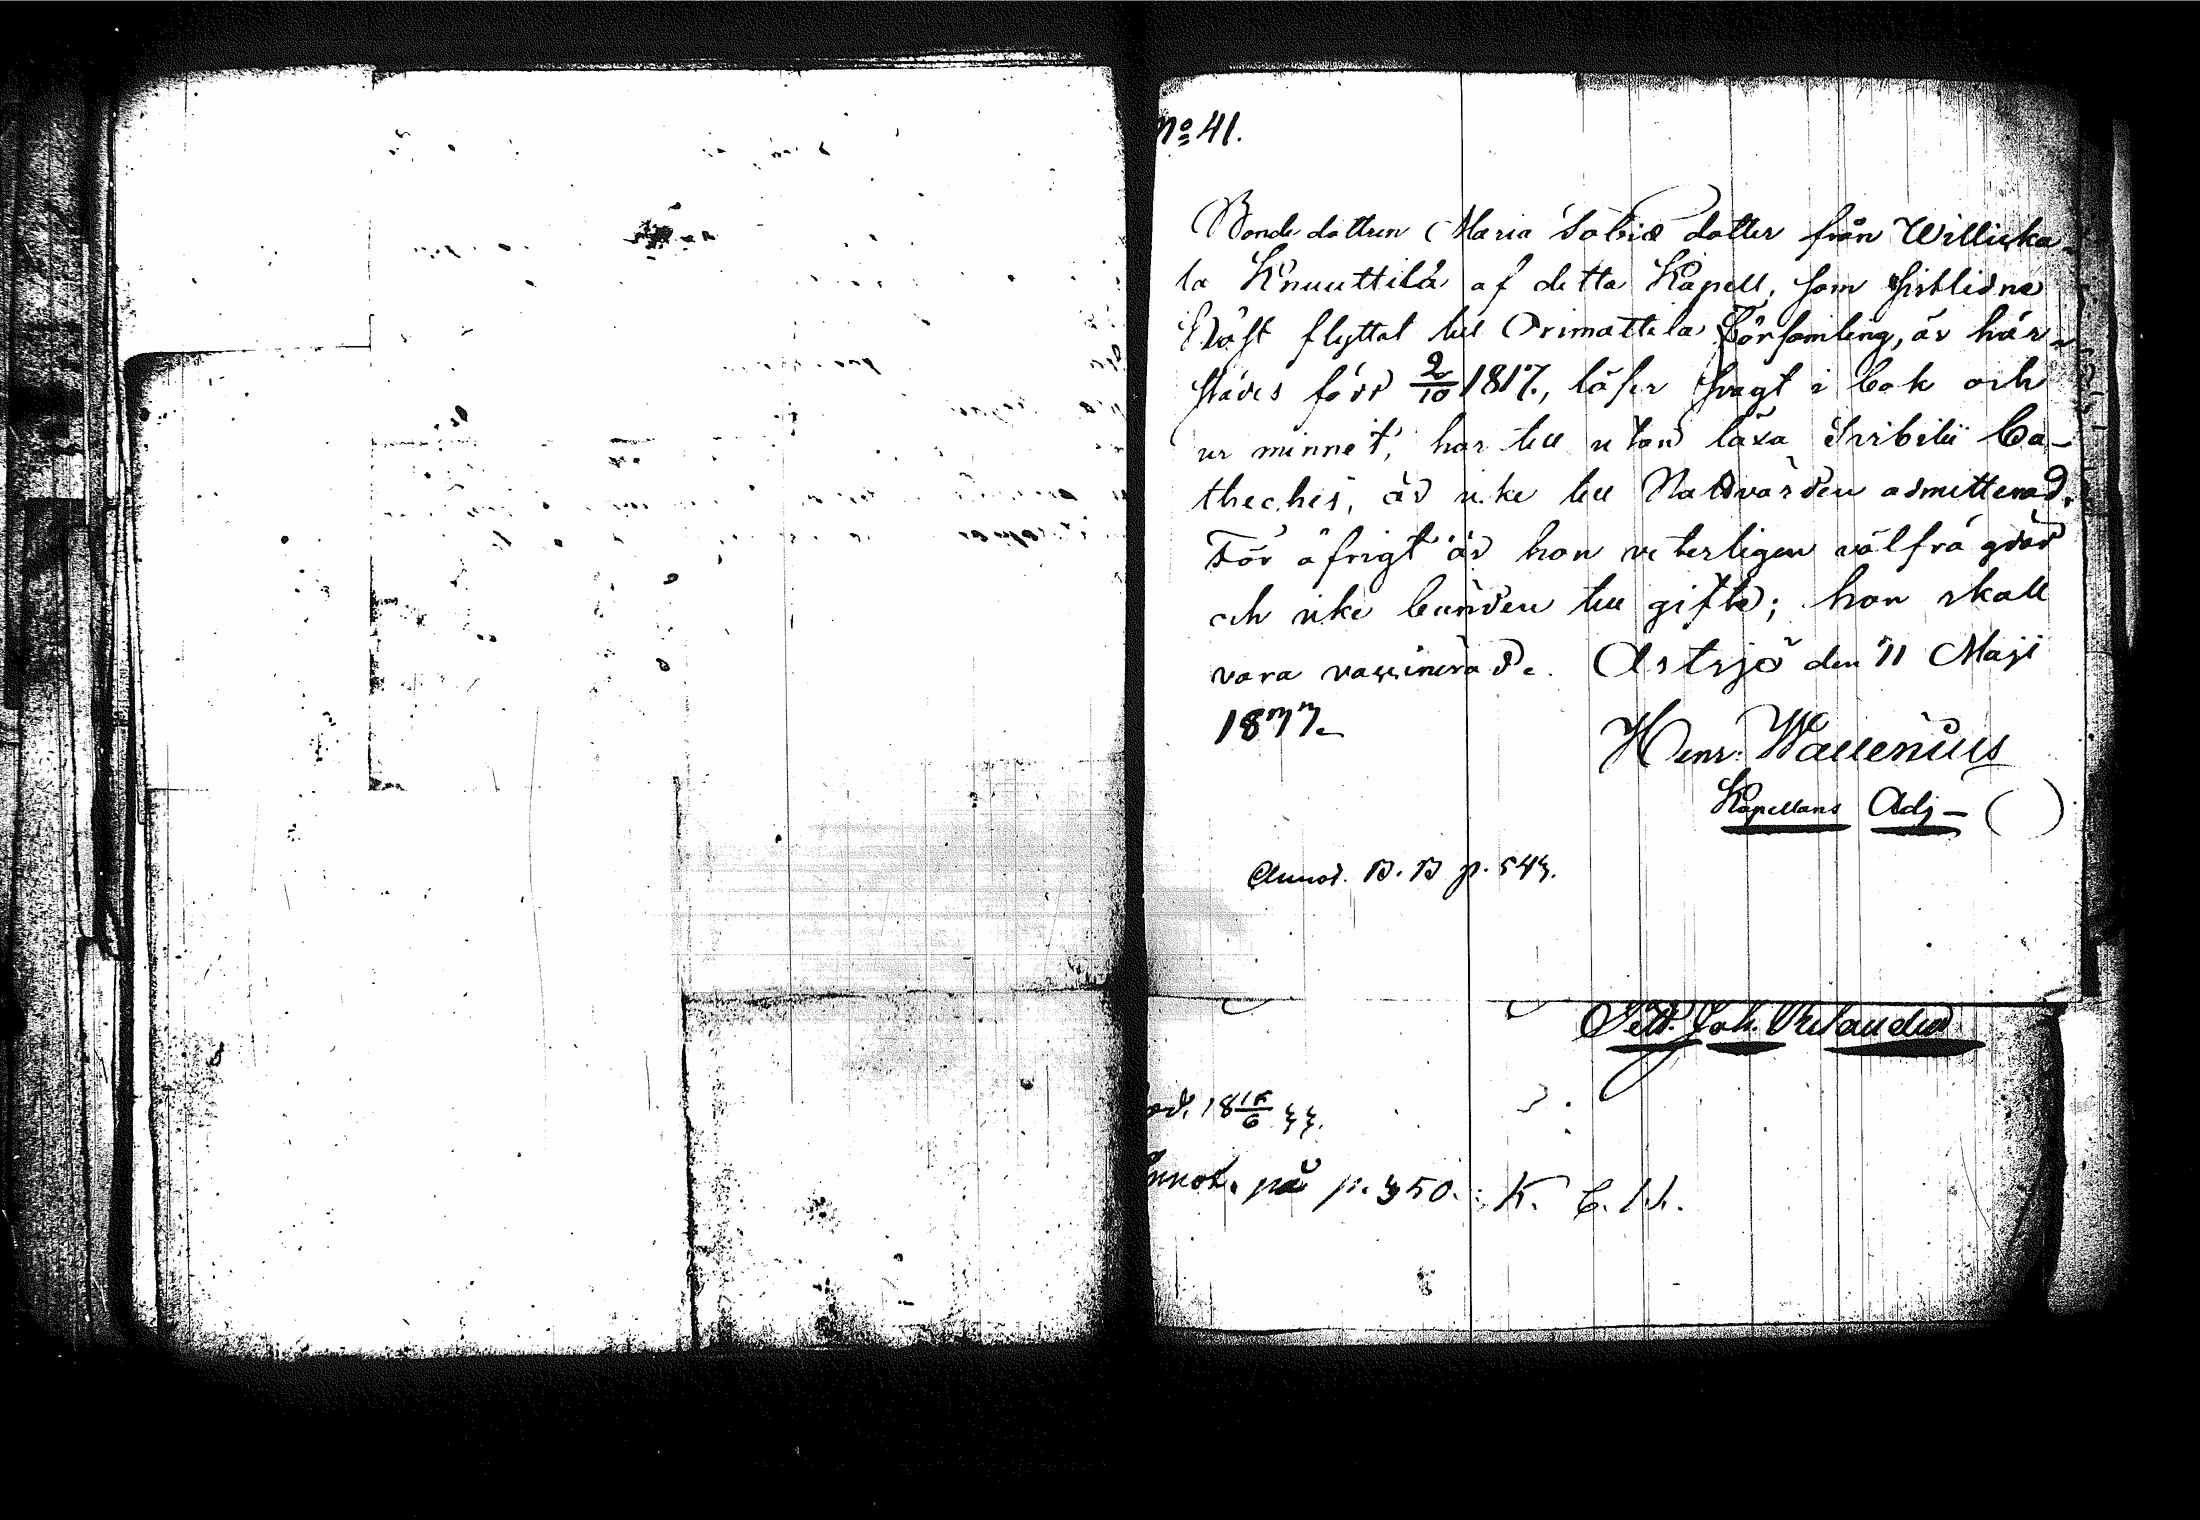 No 41.
Bondedottren Maria Tobiæ dotter från Willicka-
la Knuuttila af detta Kapell, som sistlidne
Höst flyttat till Orimattila Församling, är här-
städes född 2/10 1817, läser svagt i bok och
ur minnet, har till utan läxa Svebilii Ca-
theches, är icke till Nattvarden admitterad.
För öfrigt är hon veterligen välfrägdad
och icke bunden till gifte; hon skall
vara vaccinerad. Artsjö den 11 Maji
1833.
Henr: Wallenius
Kapellans Adj-( )
Annot. B. B p. 543.
Petr. Joh.
18 15/6 33.
Annot. på p. 350. K. C. 11.